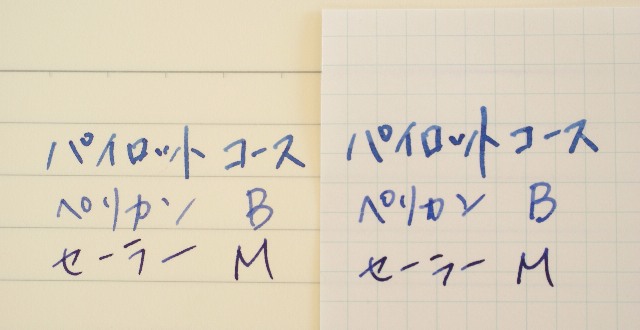 パイロット コース
ペリカン B
セーラー M
パイロット コース
ペリカン B
セーラー M